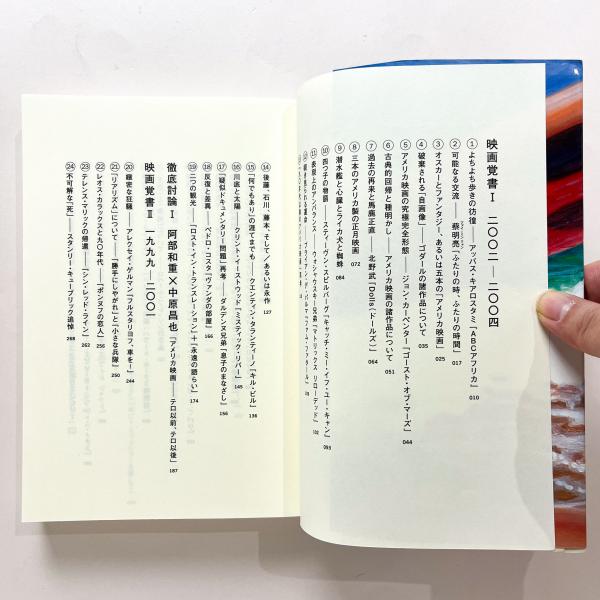 映画覚書Ⅰ 二〇〇二―二〇〇四
①よちよち歩きの彷徨――アッバス・キアロスタミ『ABCアフリカ』 010
②可能なる交流――蔡明亮『ふたつの時、ふたりの時間』 017
③オスカーとファンタジー、あるいは五本の「アメリカ映画」 025
④破棄される「自画像」――ゴダールの諸作品について 035
⑤アメリカ映画の究極完全形態――ジョン・カーペンター『ゴースト・オブ・マーズ』 044
⑥古典的回帰と種明かし――アメリカ映画の諸作品について 051
⑦過去の再来と馬鹿正直――北野武『Dolls〈ドールズ〉』 064
⑧三本のアメリカ製の正月映画 072
⑨潜水艦と心臓とライカ犬と蜘蛛 084
⑩四つ子の物語――スティーヴン・スピルバーグ『キャッチ・ミー・イフ・ユー・キャン』 093
⑪表象上のアンバランス――ウォシャウスキー兄弟『マトリックス リローデッド』 102
⑭後藤、石川、藤本、そして/あるいは永作 127
⑮「何でもあり」の涯てまでも――クエンティン・タランティーノ『キル・ビル』 136
⑯川底と太陽――クリント・イーストウッド『ミスティック・リバー』 145
⑰「疑似ドキュメンタリー問題」再考――ダルデンヌ兄弟『息子のまなざし』 156
⑱反復と差異――ペドロ・コスタ『ヴァンダの部屋』 166
⑲二つの観光――『ロスト・イン・トランスレーション』+『永遠の語らい』 174
徹底討論Ⅰ 阿部和重×中原昌也「アメリカ映画――テロ以前、テロ以後」 187
映画覚書Ⅱ 一九九九―二〇〇一
⑳緻密な狂騒――アレクセイ・ゲルマン『フルスタリョフ、車を!』 244
㉑「リアリズム」について――『勝手にしやがれ』と『小さな兵隊』 250
㉒レオス・カラックスと九〇年代――『ポンヌフの恋人』 256
㉓テレンス・マリックの帰還――『シン・レッド・ライン』 262
㉔不可解な「死」――スタンリー・キューブリック追悼 268